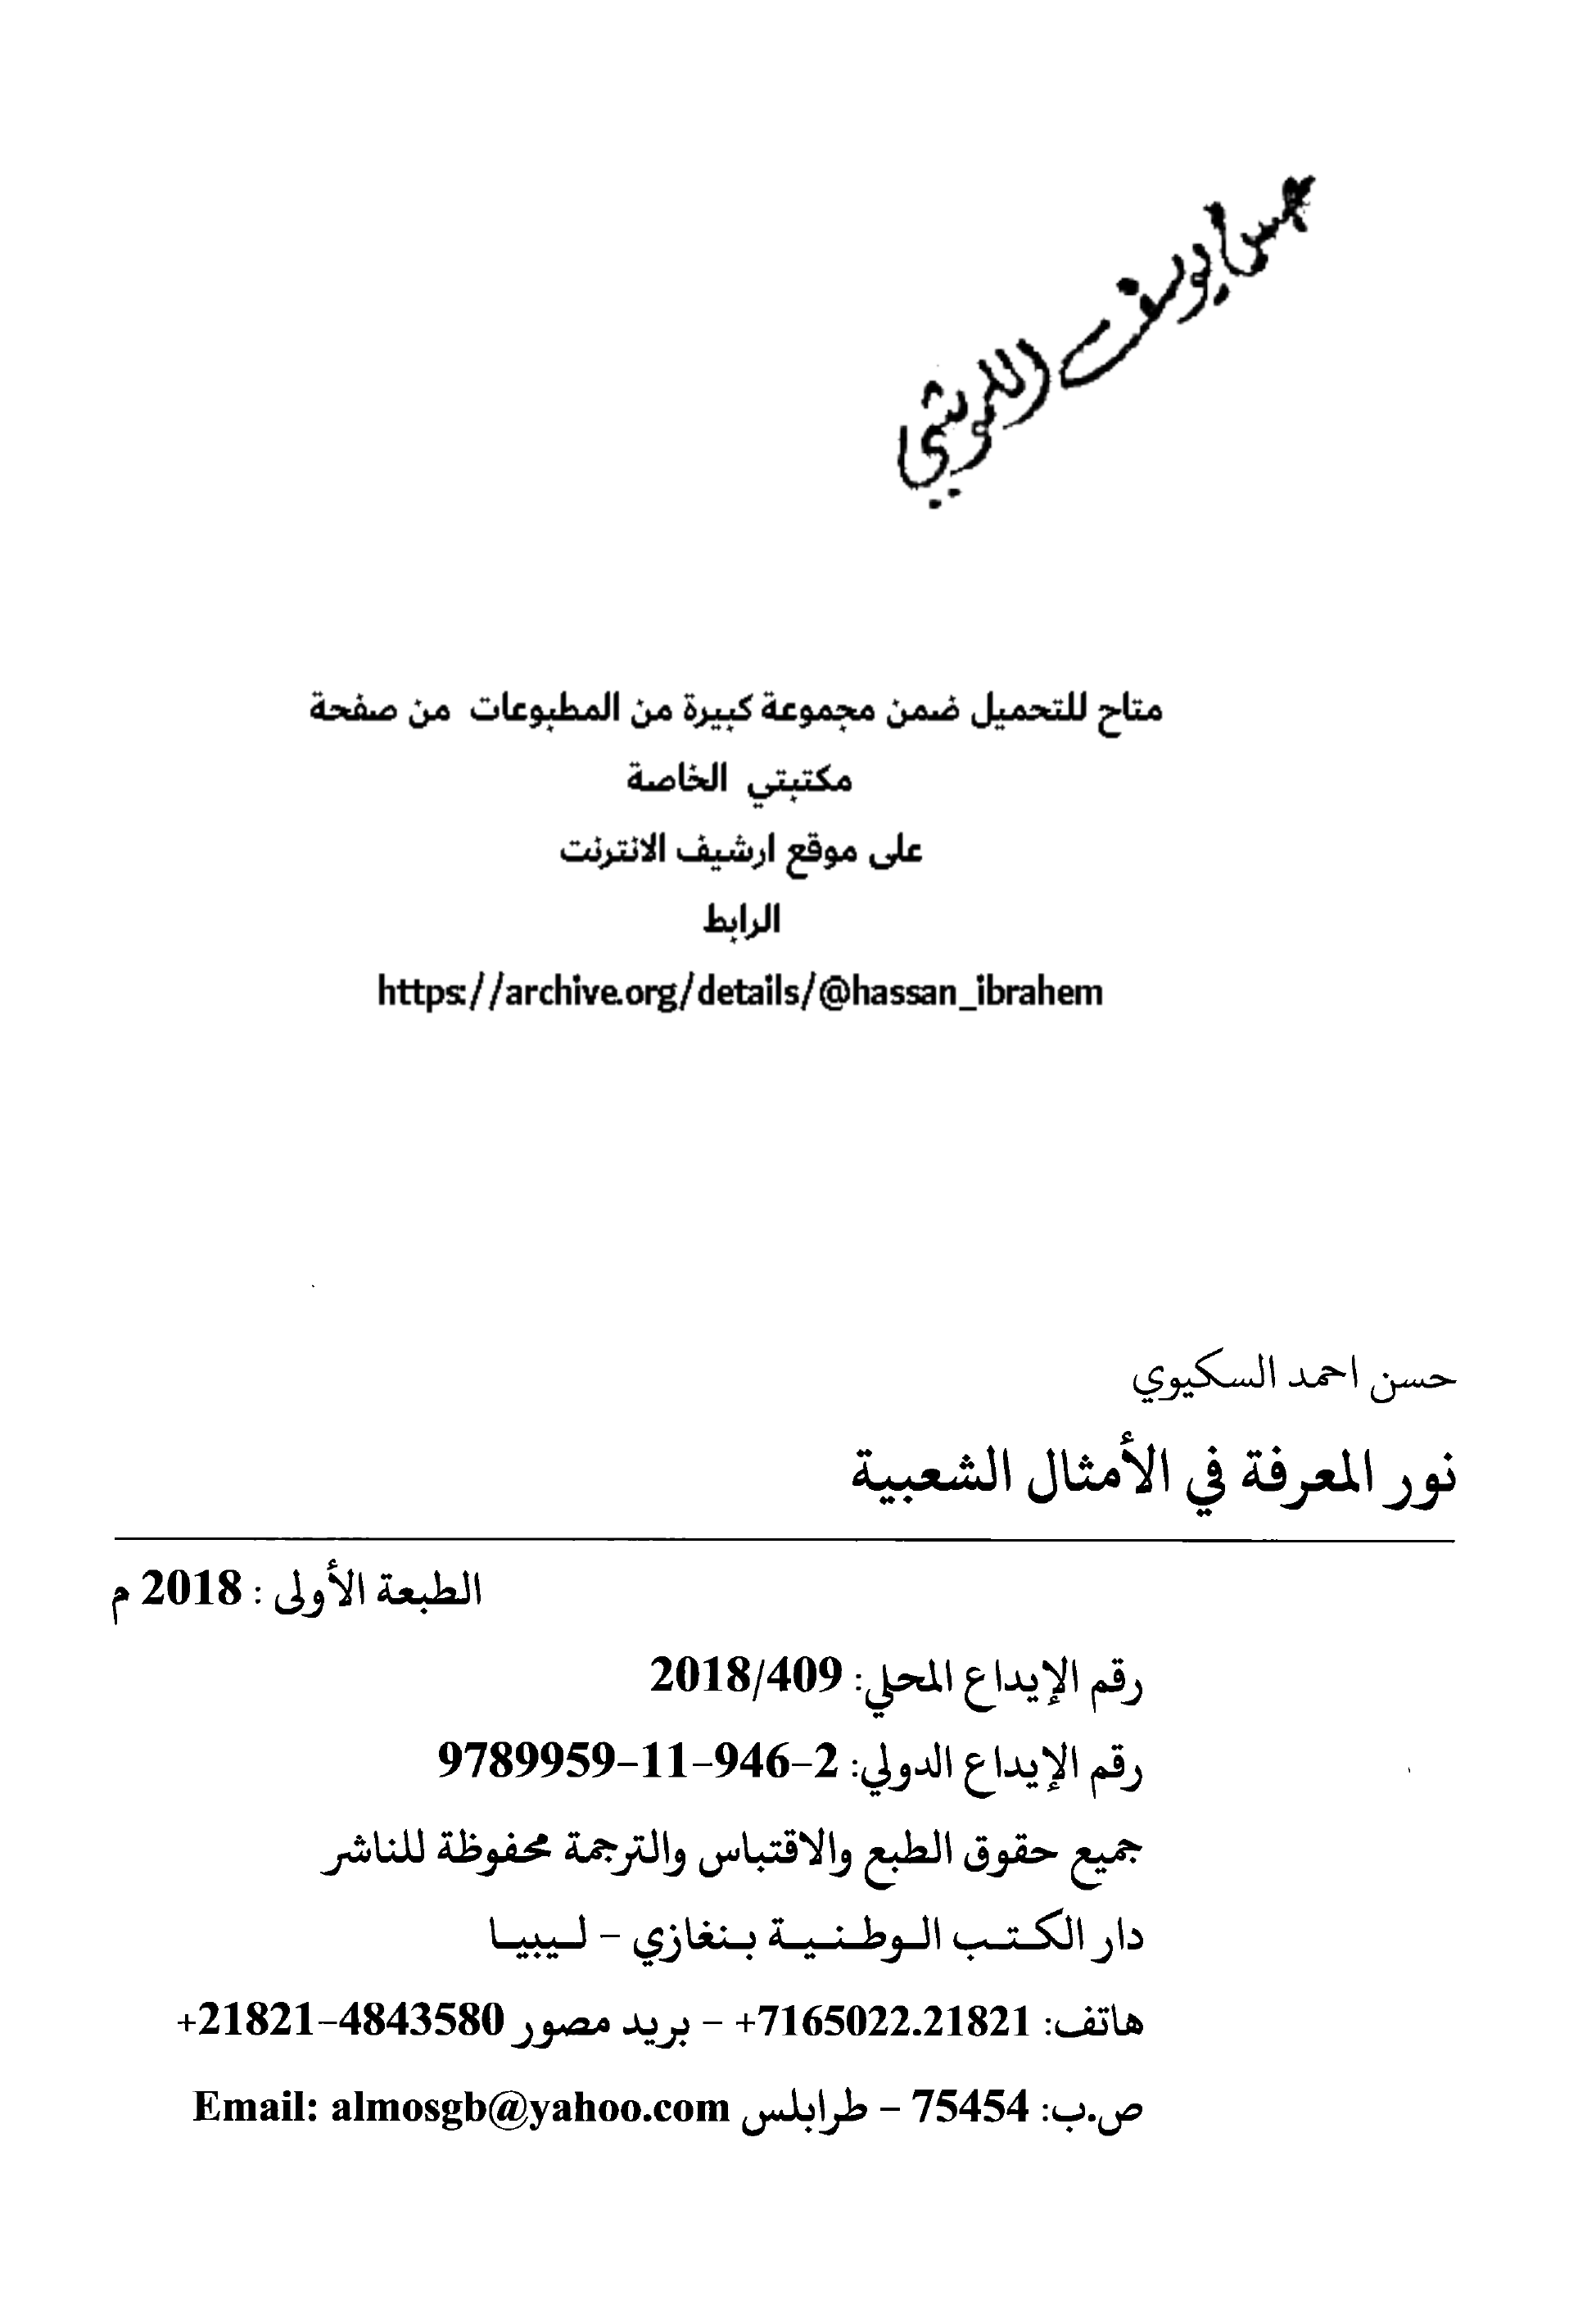 متاح للتحميل ضمن مجموعة كبيرة من المطبوعات من صفحة
مكتبتي الخاصة
على موقع ارشيف الانترنت
الرابط
https://archive.org/details/@hassan_ibrahem
حسن احمد السكيوي
نور المعرفة في الأمثال الشعبية
الطبعة الأولى : 2018 م
رقم الإيداع المحلي: 2018/409
رقم الإيداع الدولي: 2-946-11-9789959
جميع حقوق الطبع والاقتباس والترجمة محفوظة للناشر
دار الكتب الوطنية بنغازي - ليبيا
هاتف: 7165022.21821+ - بريد مصور 4843580-21821+
ص.ب: 75454 - طرابلس Email: almosgb@yahoo.com